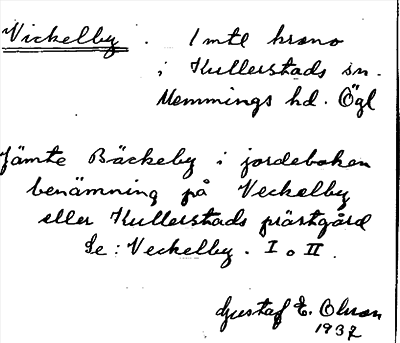 Vickelby. 1 mtl krono
i Kullerstads sn.
Memmings hd. Ögl
Jämte Bäckeby i jordeboken
benämning på Veckelby
eller Kullerstads prästgård
Se: Veckelby. I o II.
Gustaf E. Olsson
1937